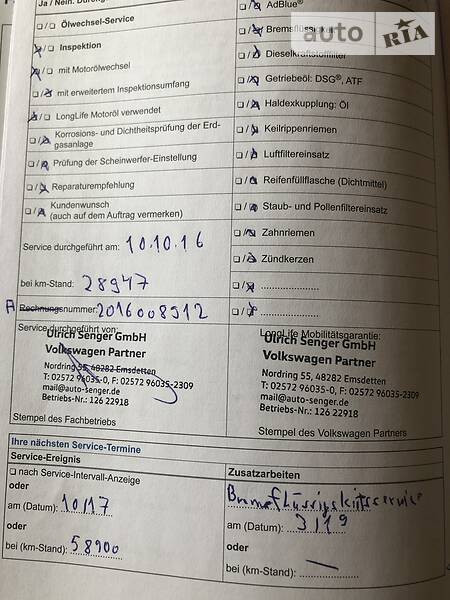 Ja / Nein:
AdBlue®
Ölwechsel-Service
Bremsflüssigkeit
Inspektion
Dieselkraftstofffilter
mit Motorölwechsel
Getriebeöl: DSG®, ATF
mit erweitertem Inspektionsumfang
Haldexkupplung: Öl
LongLife Motoröl verwendet
Keilrippenriemen
Korrosions- und Dichtheitsprüfung der Erd-
gasanlage
Luftfiltereinsatz
Prüfung der Scheinwerfer-Einstellung
Reifenfüllflasche (Dichtmittel)
Reparaturempfehlung
Staub- und Pollenfiltereinsatz
Kundenwunsch
(auch auf dem Auftrag vermerken)
Zahnriemen
Service durchgeführt am: 10.10.16
Zündkerzen
bei km-Stand: 28947
A Rechnungsnummer: 2016008912
Service durchgeführt von:
Ulrich Senger GmbH
Volkswagen Partner
Nordring 55, 48282 Emsdetten
T: 02572 96035-0, F: 02572 96035-2309
mail@auto-senger.de
Betriebs-Nr.: 126 22918
Stempel des Fachbetriebs
LongLife Mobilitätsgarantie:
Ulrich Senger GmbH
Volkswagen Partner
Nordring 55, 48282 Emsdetten
T: 02572 96035-0, F: 02572 96035-2309
mail@auto-senger.de
Betriebs-Nr.: 126 22918
Stempel des Volkswagen Partners
Ihre nächsten Service-Termine
Service-Ereignis
nach Service-Intervall-Anzeige
oder
am (Datum): 10/17
oder
bei (km-Stand): 58900
Zusatzarbeiten
Bremsflüssigkeitsservice
am (Datum): 3/19
oder
bei (km-Stand): —
auto RIA